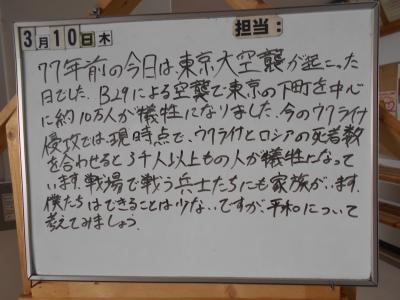 3月10日木
担当:
77年前の今日は東京大空襲が起こった
日でした。B29による空襲で東京の下町を中心
に約10万人が犠牲になりました。今のウクライナ
侵攻では、現時点で、ウクライナとロシアの死者数
を合わせると3千人以上もの人が犠牲になって
います。戦場で戦う兵士たちにも家族がいます。
僕たちはできることは少ないですが、平和について
考えてみましょう。